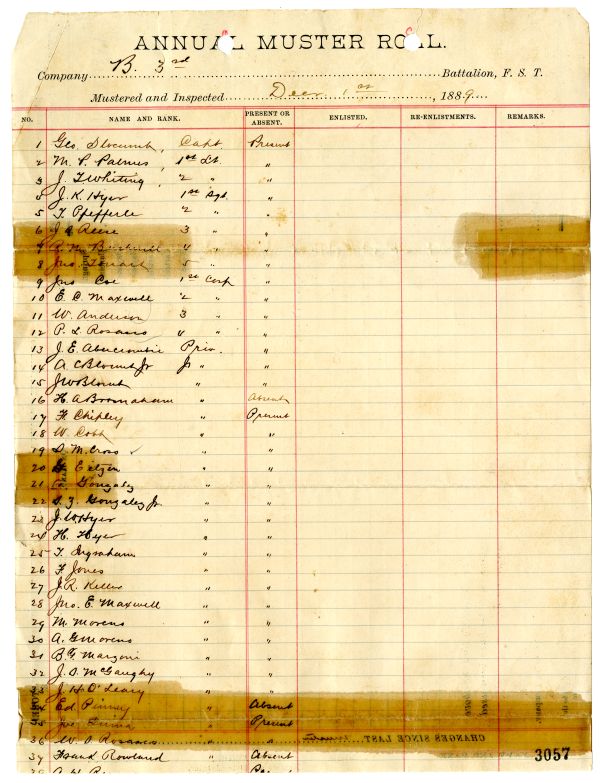 ANNUAL MUSTER ROLL.
Company B. 3rd Battalion, F. S. T.
Mustered and Inspected Decr. 1st, 1889
NO. NAME AND RANK. PRESENT OR ABSENT. ENLISTED. RE-ENLISTMENTS. REMARKS.
1 Geo. Slocumb, Capt Present
2 M. P. Palmes, 1st Lt. "
3 J. T Whiting, 2 " "
4 J. K. Hyer 1st Sgt. "
5 T. Pfefferle 2 " "
6 Reese 3 " "
7 4 " "
8 Jno. 5 " "
9 Jno Coe 1st Corp "
10 E. C. Maxwell 2 " "
11 W. Anderson 3 " "
12 P. L. Rosasco 4 " "
13 J. E. Abercrombie Priv. "
14 A. C Blount Jr "
15 J W Blount " "
16 H. A Bromaham " Absent
17 H. Chipley " Present
18 W. Cobb " "
19 D. M. Cross " "
20 Eitzen " "
21 Gonzalez " "
22 S. Z. Gonzalez Jr. " "
23 J. W. Hyer " "
24 H. Hyer " "
25 T. Ingraham " "
26 F. Jones " "
27 J. R. Keller " "
28 Jno. E. Maxwell " "
29 M. Moreno " "
30 A. G Moreno " "
31 B. G. Marzoni " "
32 J. D. McGaughy " "
33 J. H. O'Leary " "
34 Ed. Pinney " Absent
35 " Present
36 W. D. Rosasco " "
CHANGES SINCE LAST
37 Frank Rowland " Absent
3057